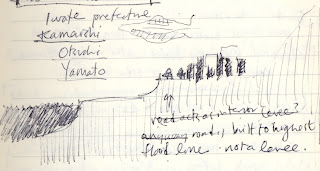 Iwate prefecture
Kamaishi
Otsuchi
Yamato
on
road acts as interior levee?
road, built to highest
flood line. not a levee.